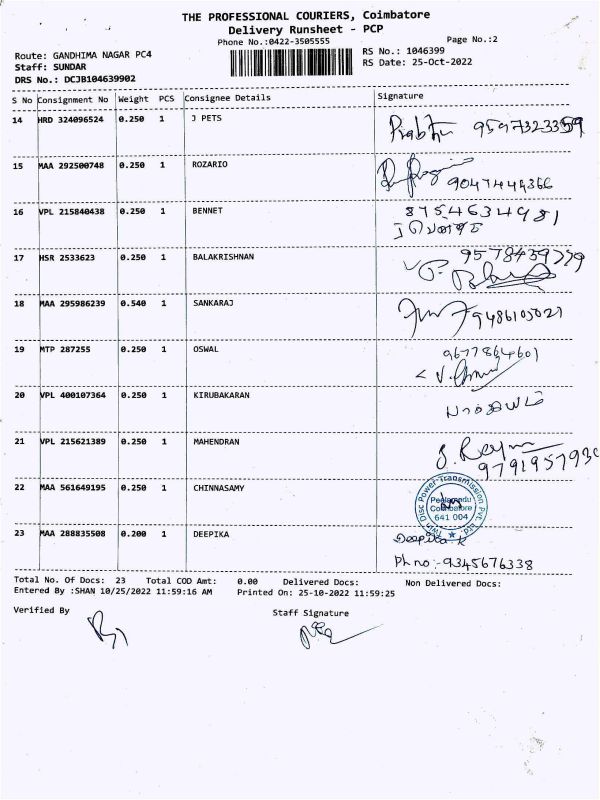 THE PROFESSIONAL COURIERS, Coimbatore
Delivery Runsheet - PCP
Phone No.:0422-3505555
Page No.:2
Route: GANDHIMA NAGAR PC4
RS No.: 1046399
Staff: SUNDAR
RS Date: 25-Oct-2022
DRS No.: DCJB104639902
S No Consignment No Weight PCS Consignee Details Signature
14 HRD 324096524 0.250 1 J PETS
9597323359
15 MAA 292500748 0.250 1 ROZARIO
9047444366
16 VPL 215840438 0.250 1 BENNET 8754634981
17 HSR 2533623 0.250 1 BALAKRISHNAN
18 MAA 295986239 0.540 1 SANKARAJ
19 MTP 287255 0.250 1 OSWAL 9677864601
20 VPL 400107364 0.250 1 KIRUBAKARAN
21 VPL 215621389 0.250 1 MAHENDRAN
22 MAA 561649195 0.250 1 CHINNASAMY
Twin Disc Power Transmission Pvt. Ltd
Peelamedu
Coimbatore
641 004
23 MAA 288835508 0.200 1 DEEPIKA Deepika R
Ph no:-9345676338
Total No. Of Docs: 23 Total COD Amt: 0.00 Delivered Docs: Non Delivered Docs:
Entered By :SHAN 10/25/2022 11:59:16 AM Printed On: 25-10-2022 11:59:25
Verified By Staff Signature